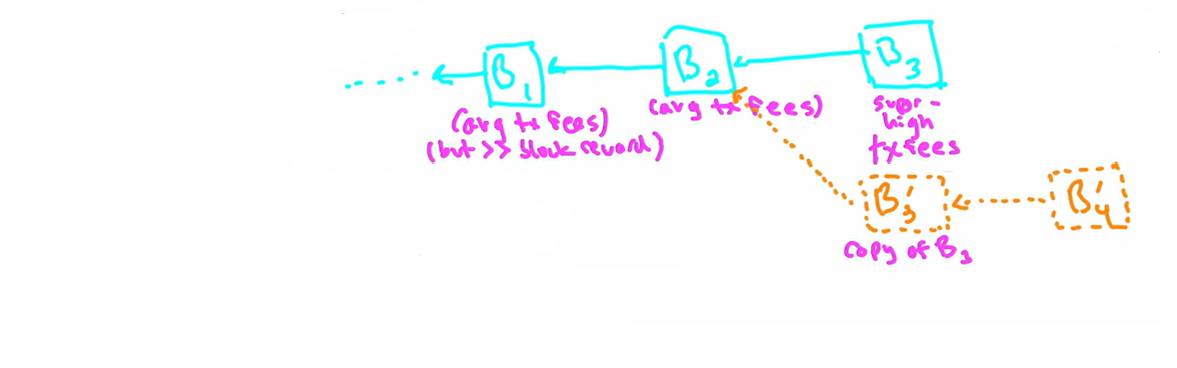 B1
B2
B3
(avg tx fees)
(but >> block reward)
(avg tx fees)
super-
high
tx fees
B3'
B4'
copy of B3